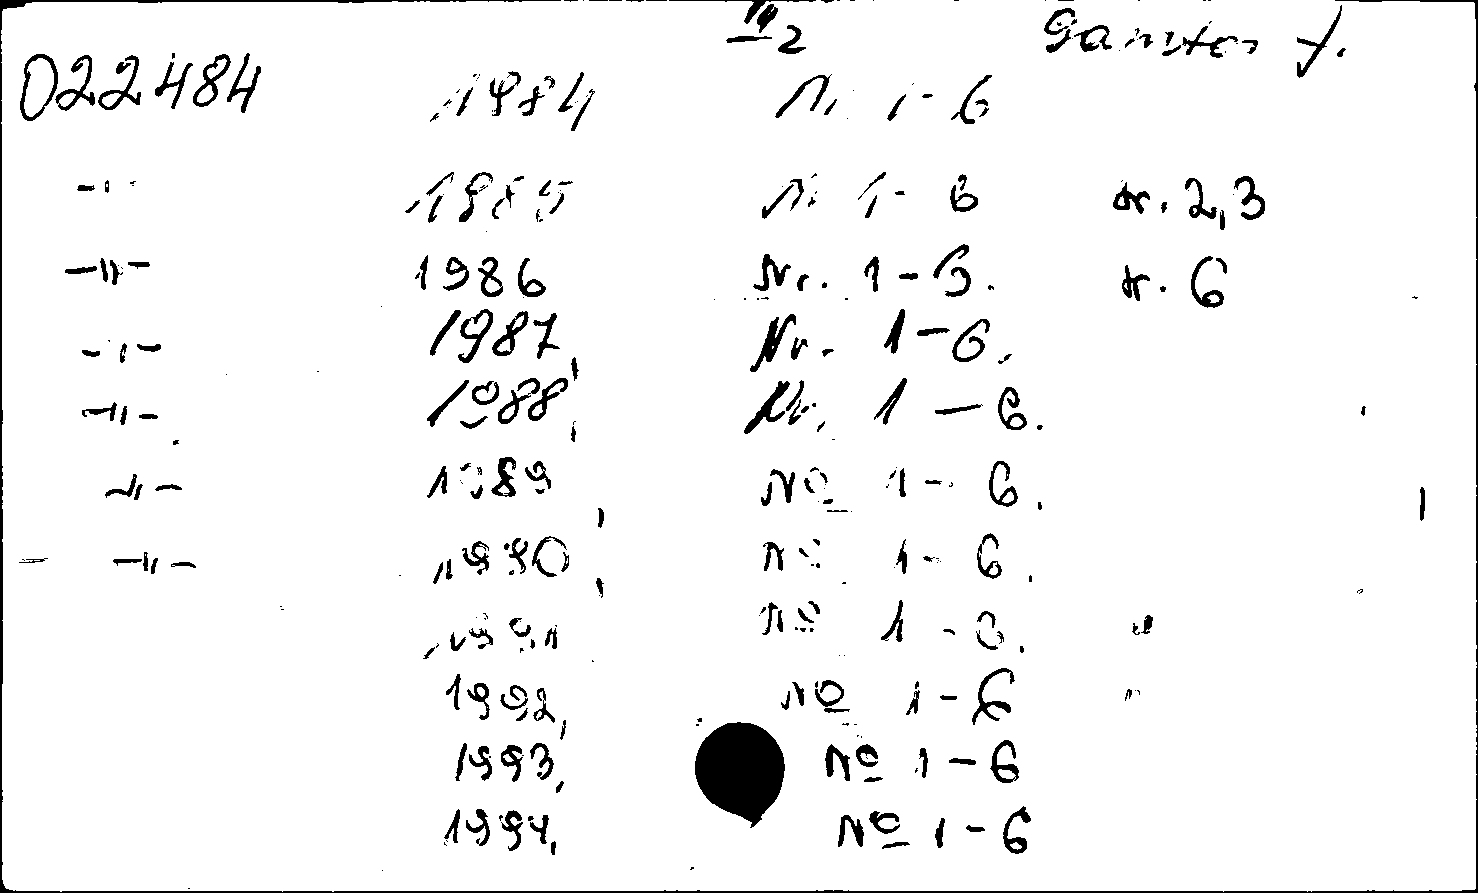 III 2 Gamtos f.
022484 1984 Nr. 1-6
-"- 1985 Nr. 1-6 tr. 2,3
-"- 1986 Nr. 1-6. tr. 6
-"- 1987, Nr. 1-6.
-"- 1988, Nr. 1-6.
-"- 1989 № 1-6.
-"- 1990, № 1-6.
1991 № 1-6. "
1992, № 1-6 "
1993, № 1-6
1994, № 1-6